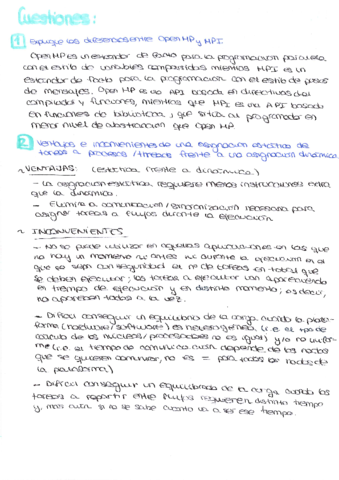 Cuestiones:
1 Explique las diferencias entre OpenMP y MPI.
OpenMP es un estándar de facto para la programación paralela
con el estilo de variables compartidas mientras MPI es un
estándar de facto para la programación con el estilo de paso
de mensajes. OpenMP es una API basada en directivas del
compilador y funciones, mientras que MPI es una API basada
en funciones de biblioteca, que sitúa al programador en
menor nivel de abstracción que OpenMP
2 Ventajas e inconvenientes de una asignación estática de
tareas a procesos/threads frente a una asignación dinámica.
VENTAJAS: (estática frente a dinámica.)
- La asignación estática requiere menos instrucciones extra
que la dinámica.
- Elimina la comunicación/sincronización necesaria para
asignar tareas a flujos durante la ejecución.
INCONVENIENTES
- No se puede utilizar en aquellas aplicaciones en las que
no hay un momento ni antes ni durante la ejecución en el
que se sepa con seguridad el nº de tareas en total que
se deben ejecutar; las tareas a ejecutar van apareciendo
en tiempo de ejecución y en distinto momento; es decir,
no aparecen todas a la vez.
- Difícil conseguir un equilibrio de la carga cuando la plata-
forma (hardware/software) es heterogénea (i.e. el tpo de
cálculo de los núcleos/procesadores no es igual) y/o no unifor-
me (i.e. el tiempo de comunicación depende de los nodos
que se quieren comunicar, no es = para todos los nodos de
la plataforma)
- Difícil conseguir un equilibrado de la carga cuando las
tareas a repartir entre flujos requieren distinto tiempo
y, más aún si no se sabe cuánto va a ser ese tiempo.